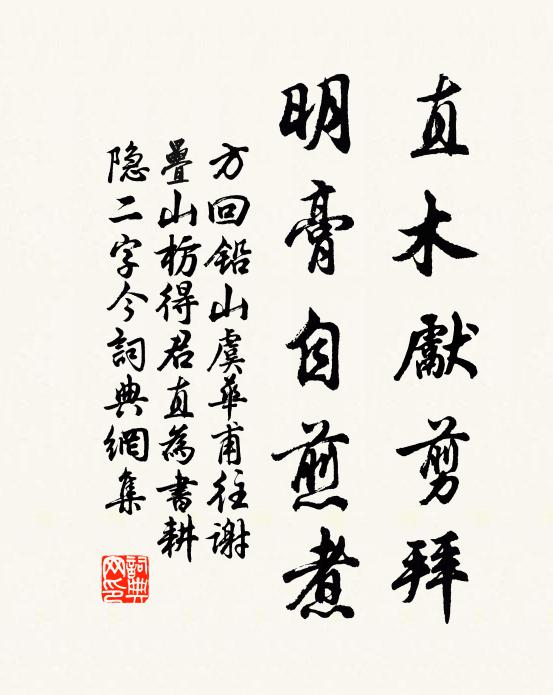 直木獻剪拜
明膏自煎煮
方回鉛山虞華甫往謝
疊山枋得君直為書耕
隐二字今詞典網集
詞典网印